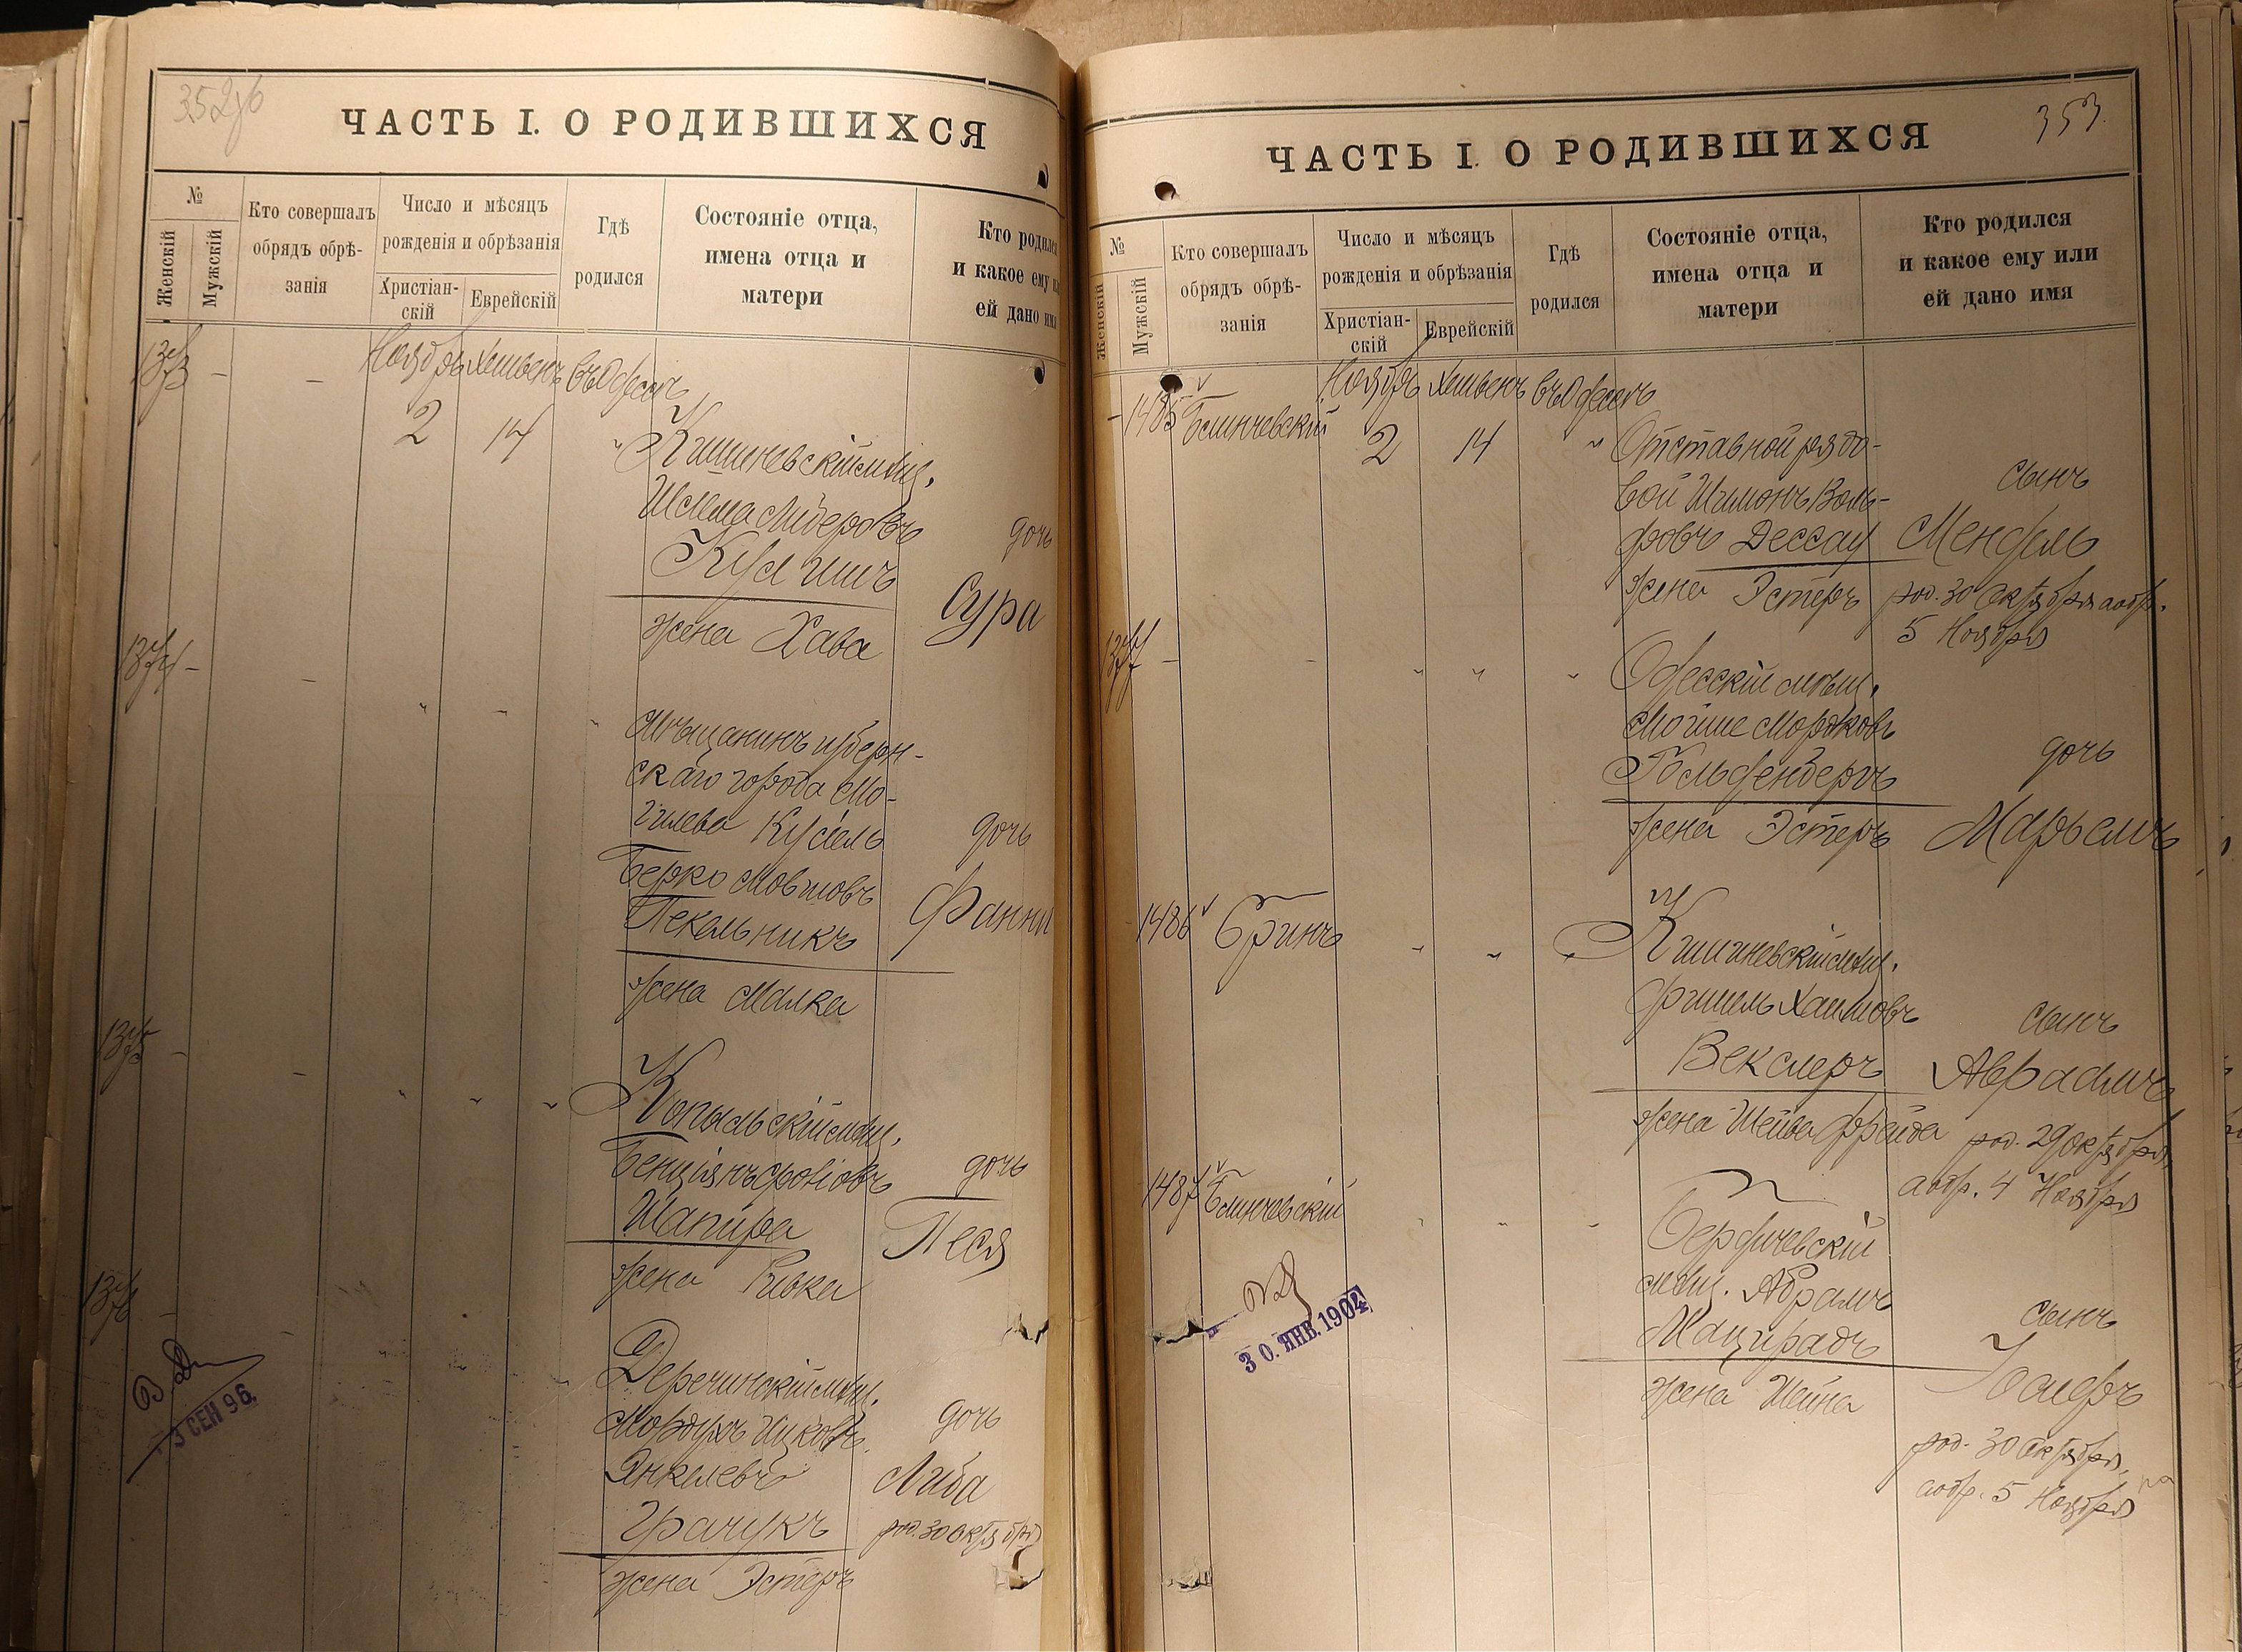 352об
ЧАСТЬ I. О РОДИВШИХСЯ
№
Женскій
Мужскій
Кто совершалъ
обрядъ обрѣ-
занія
Число и мѣсяцъ
рожденія и обрѣзанія
Христіан-
скій
Еврейскій
Гдѣ
родился
Состояніе отца,
имена отца и
матери
Кто родился
и какое ему или
ей дано имя
1373 - - Ноябрь Хешвенъ въ Одессѣ
2 14 "
Кишиневскій мѣщ.
Шлема Либеровъ
дочь
Сура
жена Хава
1374 - -
" - "
Мѣщанинъ губерн-
скаго города Мо-
гилева Кусіель
Берко Мовшовъ
Пекельникъ
дочь
Фанни
жена Малка
1375 - -
" " "
Копыльскій мѣщ.
Бенціянъ
Шапира
дочь
Песя
жена Ривка
1376 -
Деречинскій мѣщ.
Мордухъ Ицковъ
Янкелевъ
Грачукъ
дочь
Либа
род. 30 октября
жена Эстеръ
3 СЕН 96.
353.
ЧАСТЬ I. О РОДИВШИХСЯ
№
Женскій
Мужскій
Кто совершалъ
обрядъ обрѣ-
занія
Число и мѣсяцъ
рожденія и обрѣзанія
Христіан-
скій
Еврейскій
Гдѣ
родился
Состояніе отца,
имена отца и
матери
Кто родился
и какое ему или
ей дано имя
- 1485 Блинчевскій Ноябрь Хешвенъ въ Одессѣ
2 14 "
Отставной рядо-
вой Шимонъ Воль-
фовъ Дессау
жена Эстеръ
сынъ
Мендель
род. 30 Октября а обр.
5 Ноября
1377 - - " " "
Одесскій мѣщ.
Мойше Мордковъ
Гольденбергъ
жена Эстеръ
дочь
Марьемъ
1486 Гринъ " " "
Кишиневскій мѣщ.
Фишель Хаимовъ
Векслеръ
жена Шейва Фрейда
сынъ
Авраамъ
род. 29 октября,
а обр. 4 Ноября
1487 Блинчевскій " " "
Бердичевскій
мѣщ. Абрамъ
жена Шейна
сынъ
род. 30 Октября,
а обр. 5 Ноября
30. ЯНВ. 1904